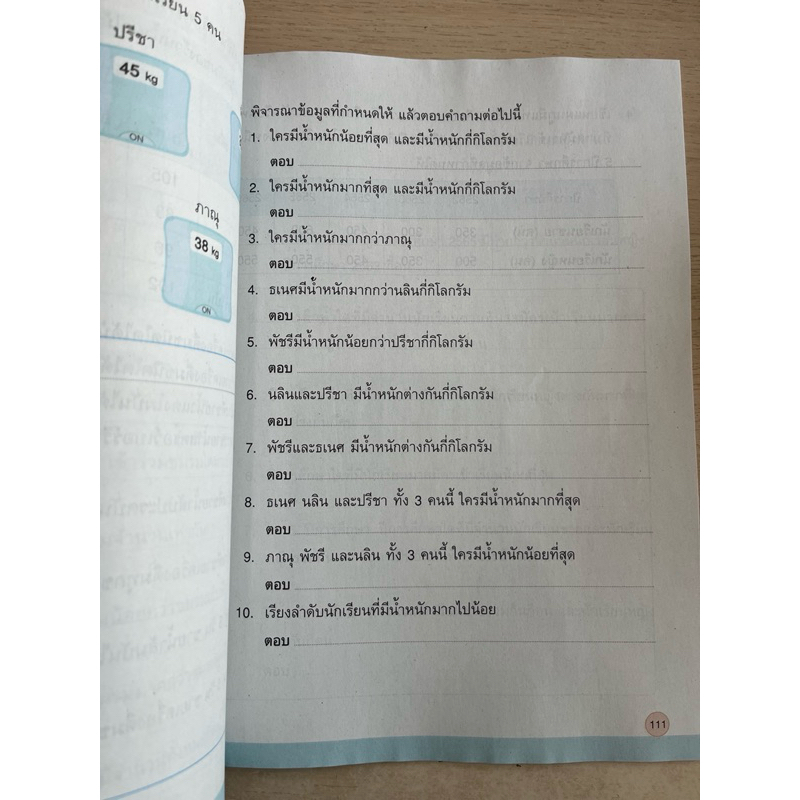 เรียน 5 คน
ปรีชา
45 kg
ON
ภาณุ
38 kg
ON
พิจารณาข้อมูลที่กำหนดให้ แล้วตอบคำถามต่อไปนี้
1. ใครมีน้ำหนักน้อยที่สุด และมีน้ำหนักกี่กิโลกรัม
ตอบ
2. ใครมีน้ำหนักมากที่สุด และมีน้ำหนักกี่กิโลกรัม
ตอบ
3. ใครมีน้ำหนักมากกว่าภาณุ
ตอบ
4. ธเนศมีน้ำหนักมากกว่านลินกี่กิโลกรัม
ตอบ
5. พัชรีมีน้ำหนักน้อยกว่าปรีชากี่กิโลกรัม
ตอบ
6. นลินและปรีชา มีน้ำหนักต่างกันกี่กิโลกรัม
ตอบ
7. พัชรีและธเนศ มีน้ำหนักต่างกันกี่กิโลกรัม
ตอบ
8. ธเนศ นลิน และปรีชา ทั้ง 3 คนนี้ ใครมีน้ำหนักมากที่สุด
ตอบ
9. ภาณุ พัชรี และนลิน ทั้ง 3 คนนี้ ใครมีน้ำหนักน้อยที่สุด
ตอบ
10. เรียงลำดับนักเรียนที่มีน้ำหนักมากไปน้อย
ตอบ
111